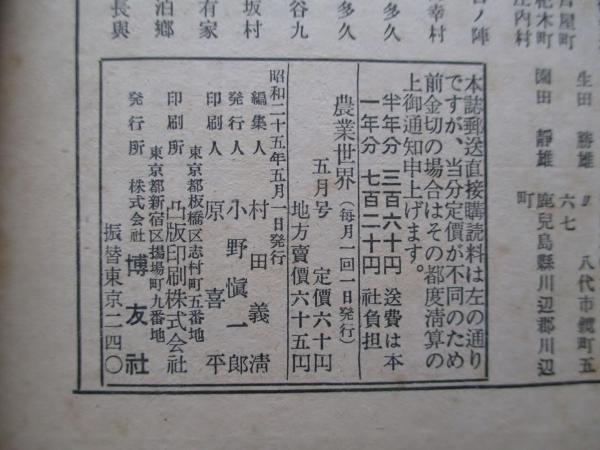 芦屋町
杷木町
庄内村
生田　勝雄
園田　靜雄
〃　八代市鏡町五
六七
鹿兒島縣川辺郡川辺
町
ノ陣
幸村
多久
多久
谷九
坂村
有家
泊鄉
長與
本誌郵送直接購読料は左の通り
ですが、当分定價が不同のため
前金切の場合はその都度淸算の
上御通知申上げます。
半年分　三百六十円　送費は本
一年分　七百二十円　社負担
農業世界（每月一回一日発行）
五月号　定價六十円
地方賣價六十五円
昭和二十五年五月一日発行
編集人　村田義淸
発行人　小野愼一郎
印刷人　原喜平
東京都板橋区志村町五番地
印刷所　凸版印刷株式会社
東京都新宿区揚場町九番地
発行所　株式会社　博友社
振替東京二四〇